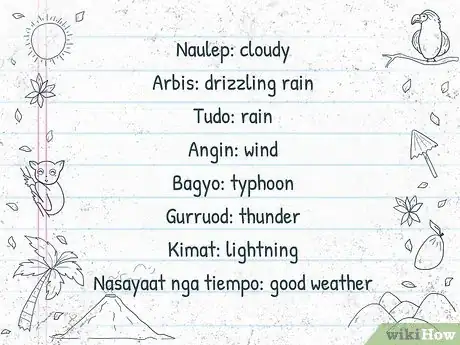 Naulep: cloudy
Arbis: drizzling rain
Tudo: rain
Angin: wind
Bagyo: typhoon
Gurruod: thunder
Kimat: lightning
Nasayaat nga tiempo: good weather
wikiHow